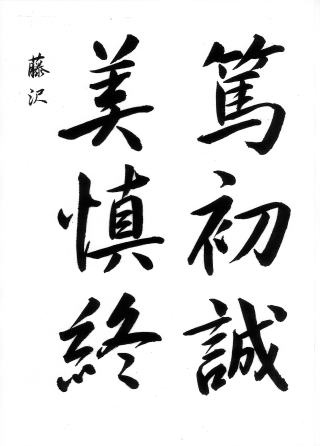 篤初誠
美慎終
藤沢